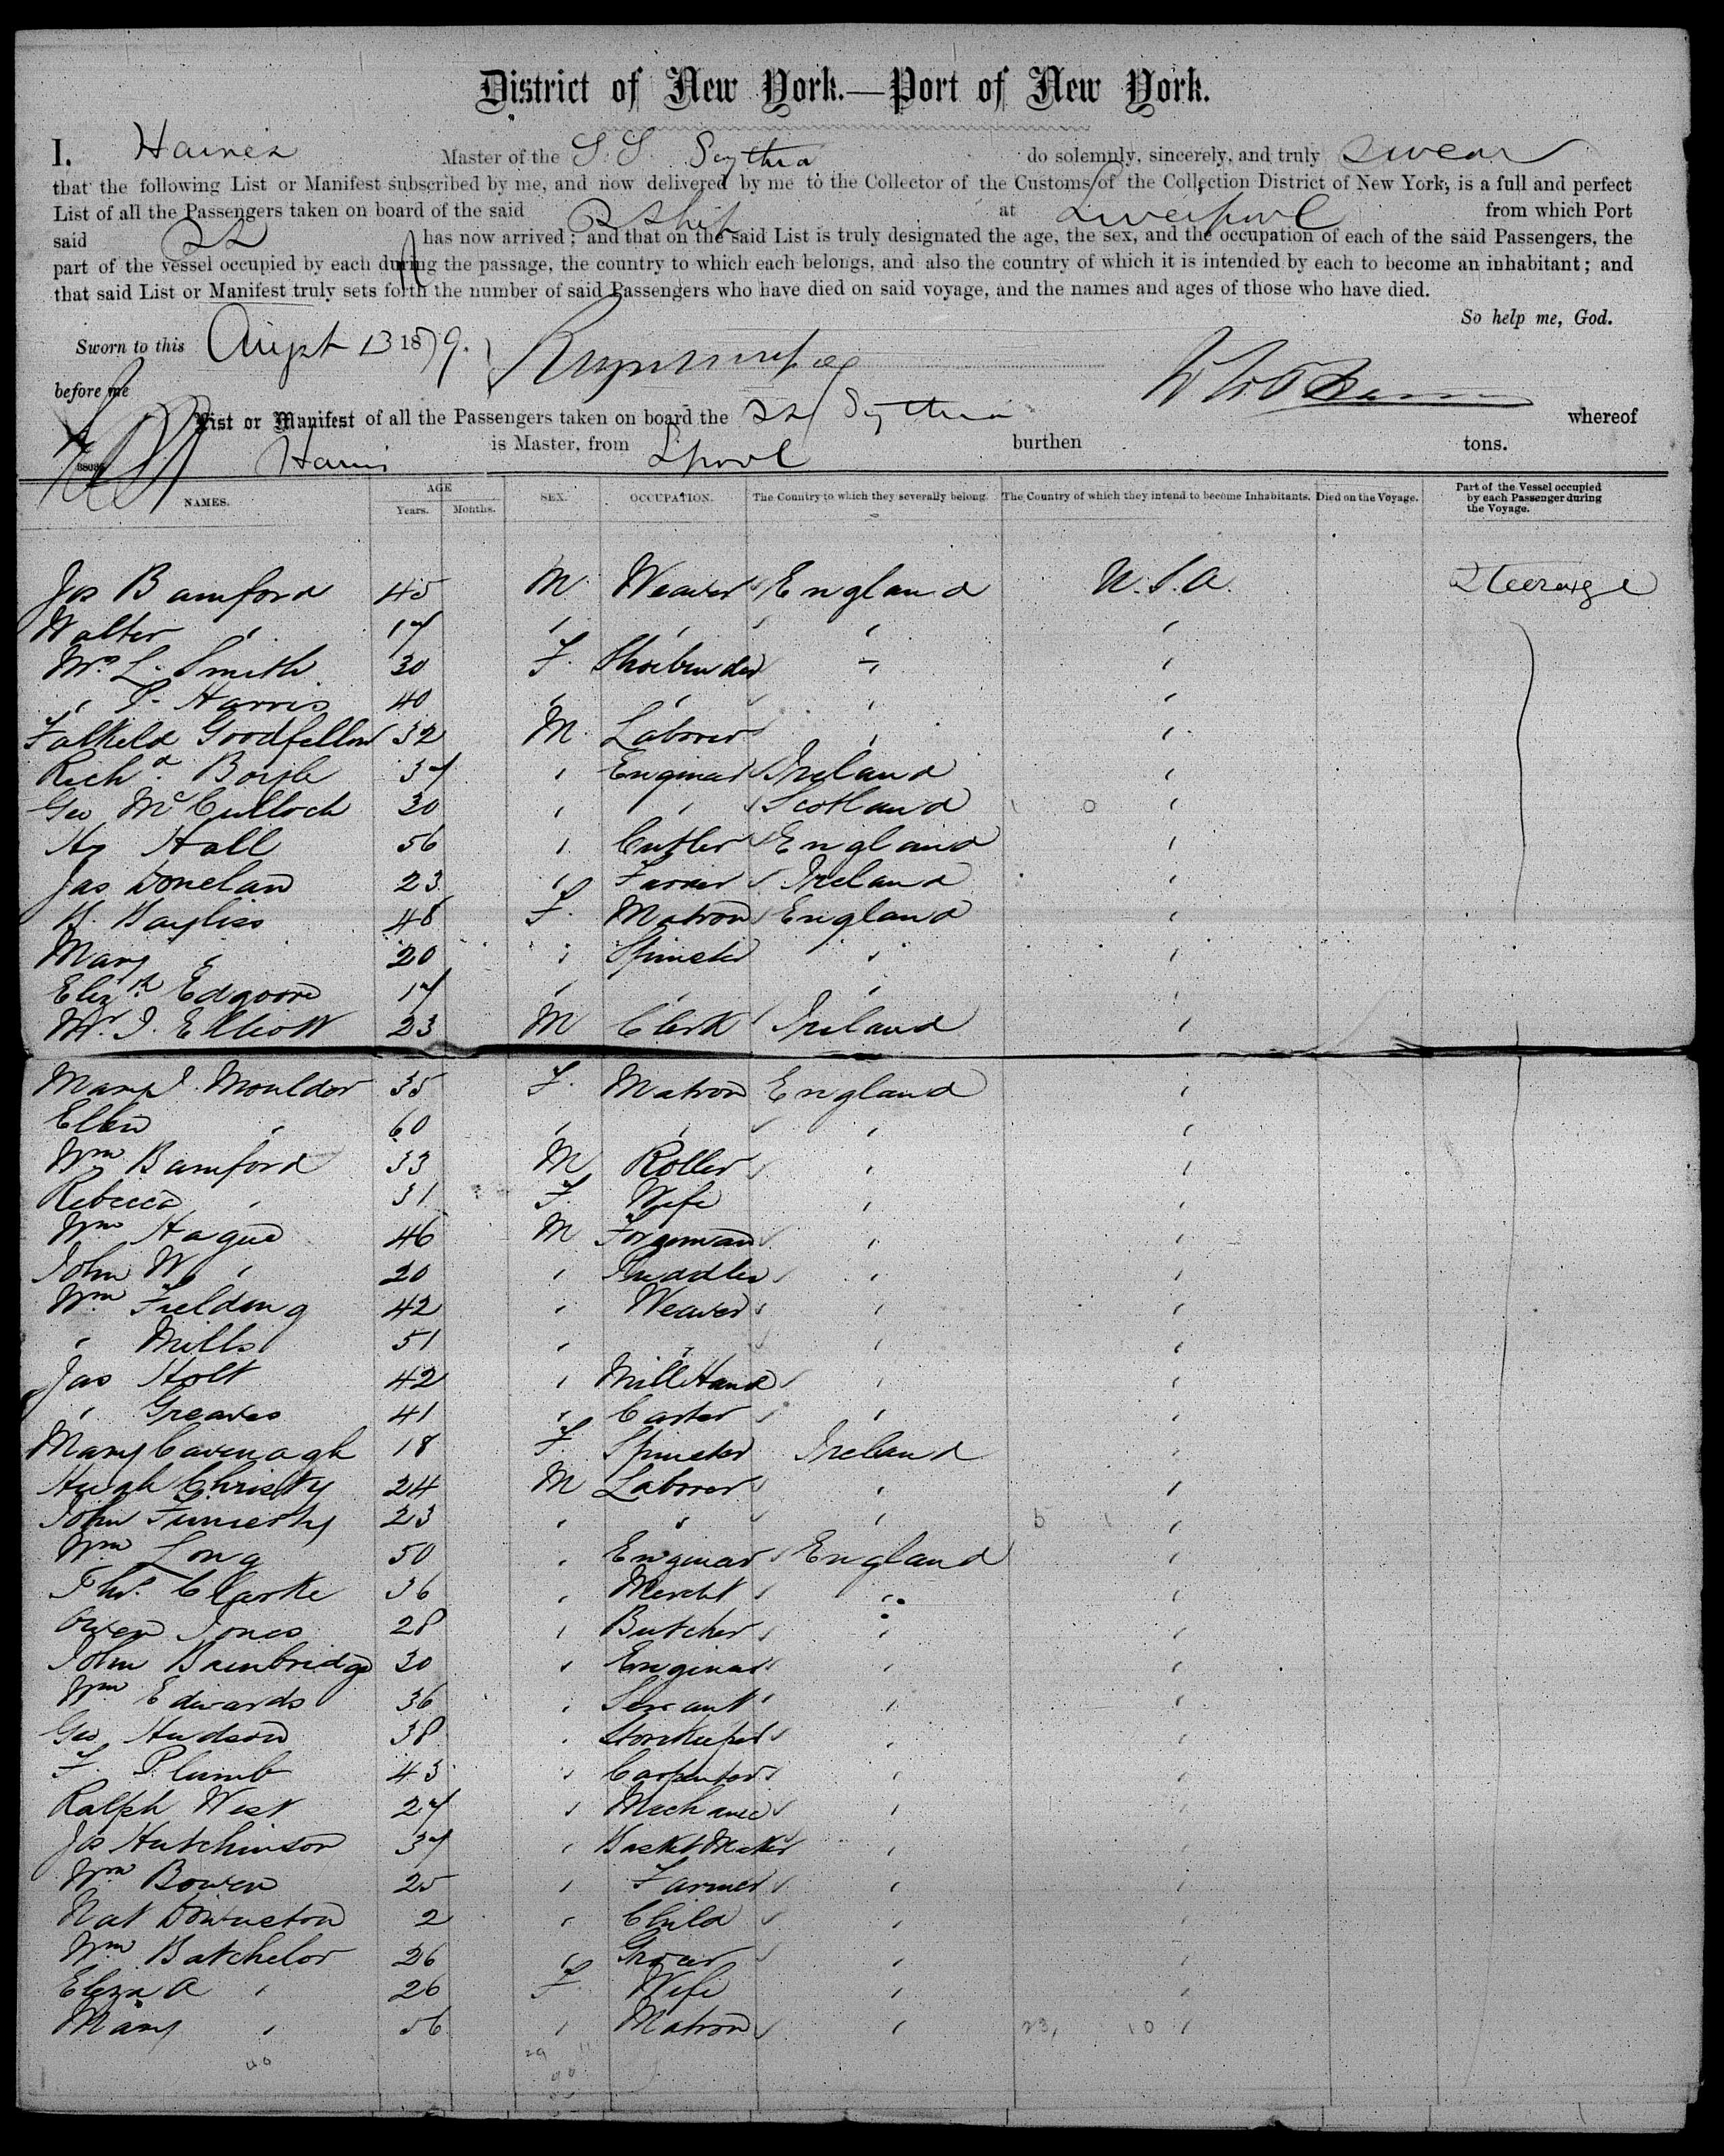 District of New York.—Port of New York.
I, Haines Master of the S.S. Scythia do solemnly, sincerely, and truly swear
that the following List or Manifest subscribed by me, and now delivered by me to the Collector of the Customs of the Collection District of New York, is a full and perfect
List of all the Passengers taken on board of the said SShip at Liverpool from which Port
said SS has now arrived; and that on the said List is truly designated the age, the sex, and the occupation of each of the said Passengers, the
part of the vessel occupied by each during the passage, the country to which each belongs, and also the country of which it is intended by each to become an inhabitant; and
that said List or Manifest truly sets forth the number of said Passengers who have died on said voyage, and the names and ages of those who have died.
So help me, God.
Sworn to this Augst 13 1879.
before me
List or Manifest of all the Passengers taken on board the SS Scythia whereof
Haines is Master, from Lpool burthen tons.
NAMES. AGE Years. Months. SEX. OCCUPATION. The Country to which they severally belong. The Country of which they intend to become Inhabitants. Died on the Voyage. Part of the Vessel occupied by each Passenger during the Voyage.
Jos Bamford 45 M Weaver England U.S.A. Steerage
Walter " 17 " " " "
Mrs L. Smith 30 F. Shoebinder " "
" P. Harris 40 " " " "
Falkeld Goodfellow 32 M. Laborer " "
Richd Boyle 37 " Engineer Ireland "
Geo McCulloch 30 " " Scotland "
Hy Hall 56 " Cutler England "
Jas Donelan 23 " Farmer Ireland "
B. Bayliss 48 F. Matron England "
Mary " 20 " Spinster " "
Elizth Edgoose 17 " " " "
Wm J. Elliott 23 M Clerk Ireland "
Mary J. Moulder 35 F. Matron England "
Ellen " 60 " " " "
Wm Bamford 33 M Roller " "
Rebecca " 31 F. Wife " "
Wm Hague 46 M Forgeman " "
John W " 20 " Puddler " "
Wm Fielding 42 " Weaver " "
" Mills 51 " " " "
Jas Holt 42 " Mill Hand " "
" Greaves 41 " Carter " "
Mary Cavenagh 18 F. Spinster Ireland "
Hugh Christy 24 M Laborer " "
John 23 " " " "
Wm Long 50 " Engineer England "
Thos. Clarke 36 " Mercht " "
Owen Jones 28 " Butcher " "
John Bainbridge 30 " Engineer " "
Wm Edwards 36 " Servant " "
Geo Hudson 38 " Storekeeper " "
F. Plumb 43 " Carpenter " "
Ralph West 27 " Mechanic " "
Jos Hutchinson 37 " Basket Maker " "
Wm Bowen 25 " Farmer " "
Nat 2 " Child " "
Wm Batchelor 26 " Grocer " "
Eliza A " 26 F. Wife " "
Mary " 56 " Matron " "